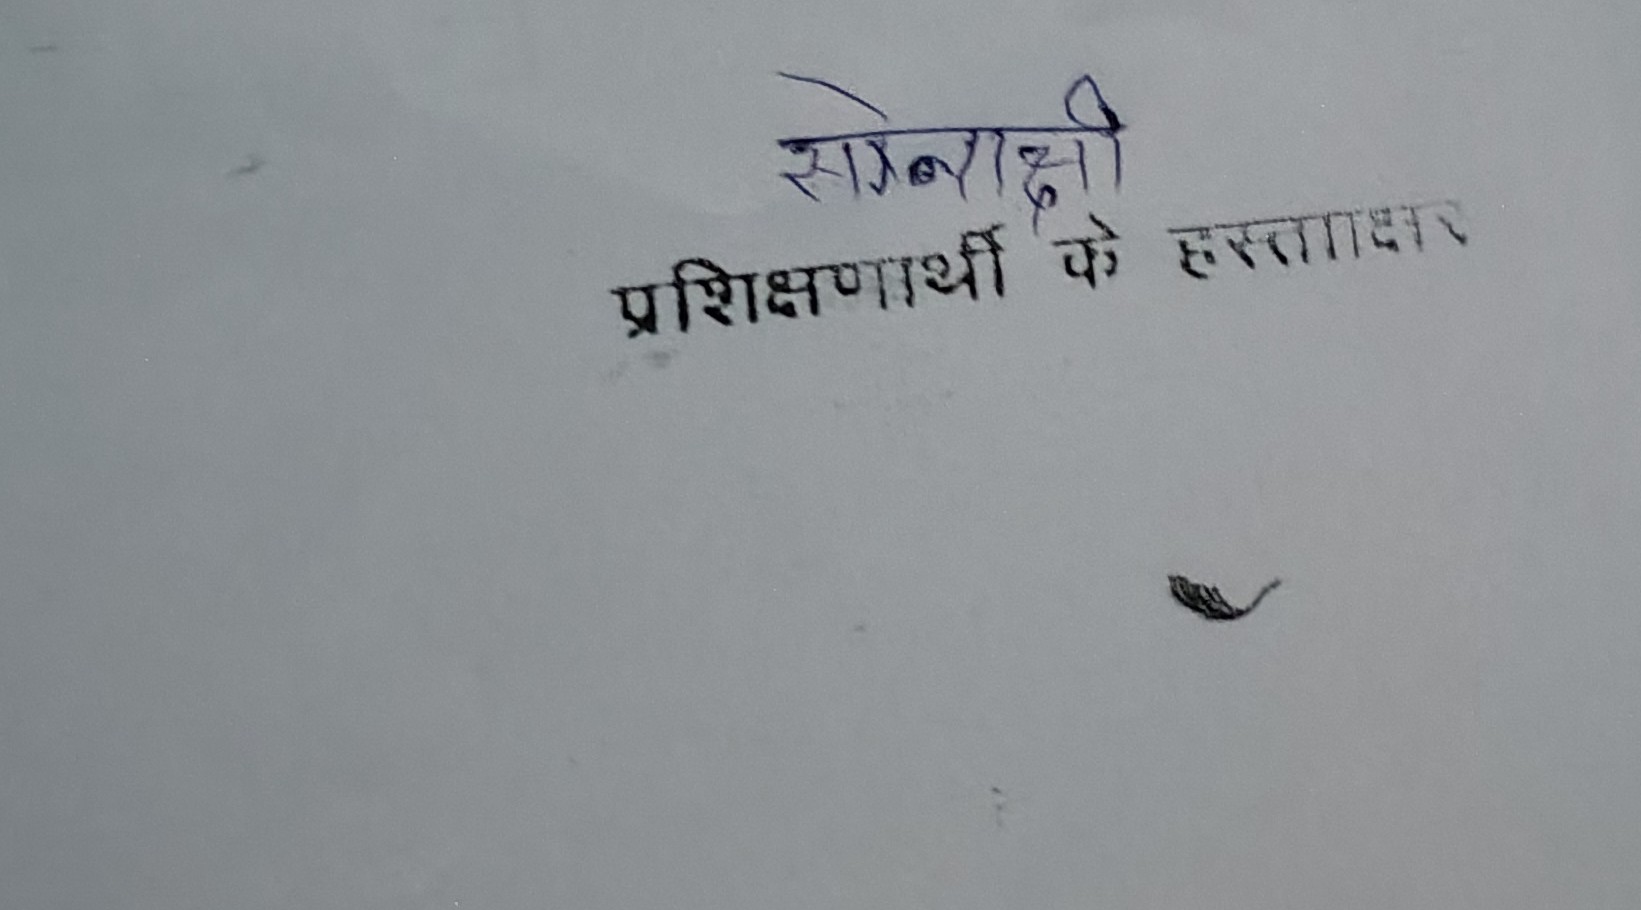 सोनाक्षी
प्रशिक्षणार्थी के हस्ताक्षर